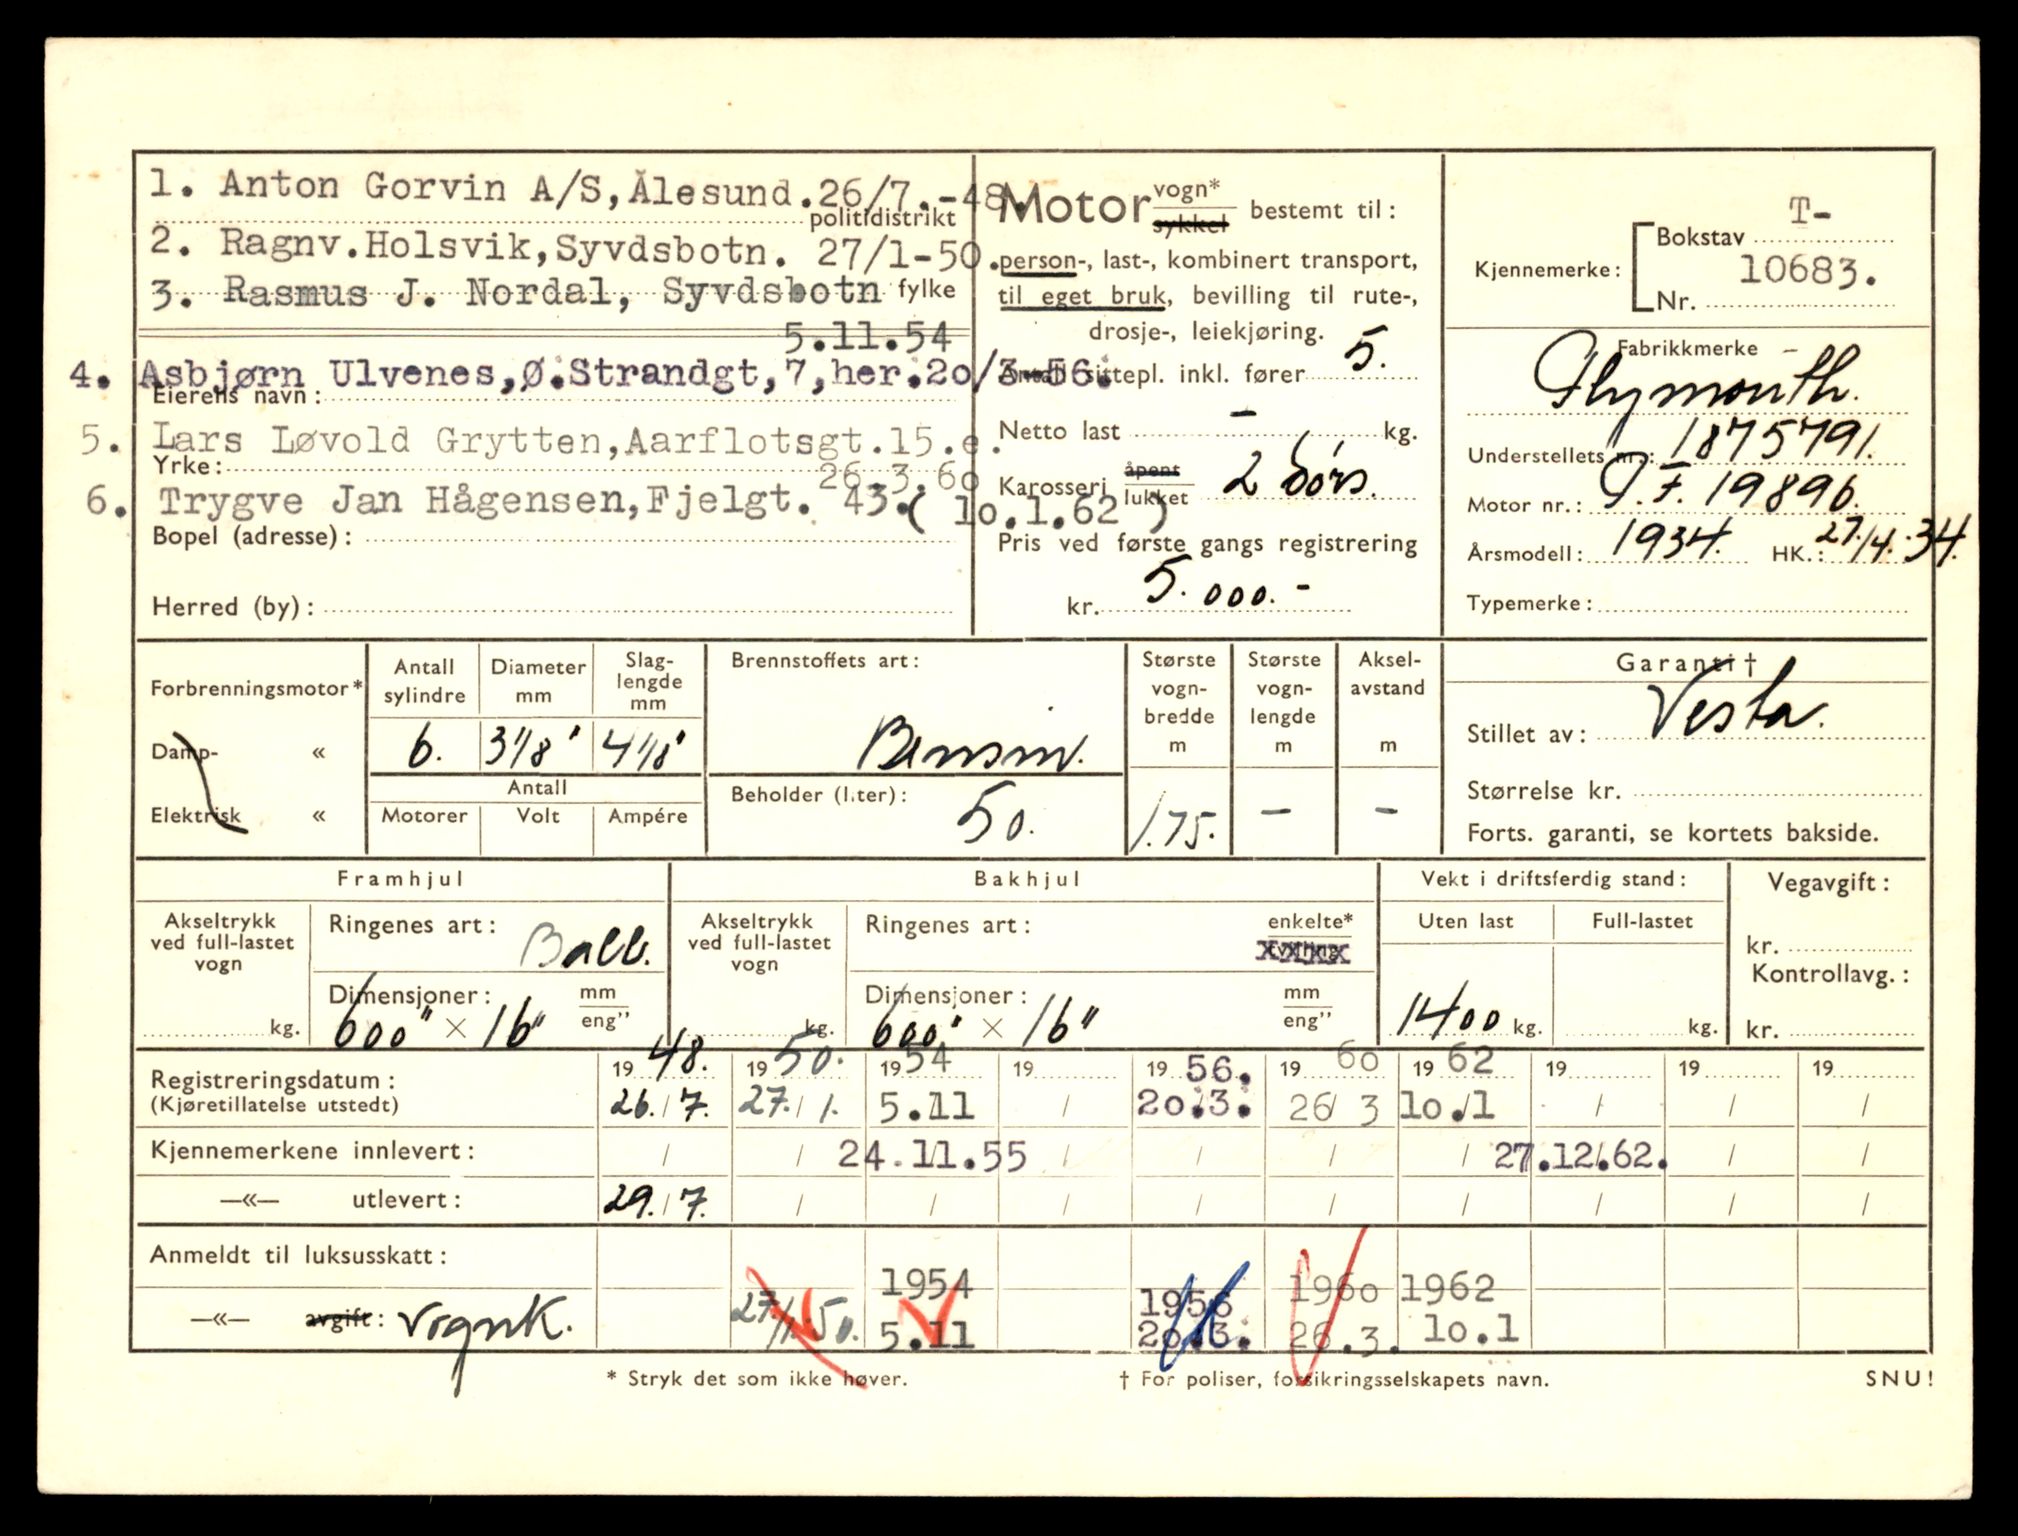 1. Anton Gorvin A/S,Ålesund.26/7.-48.
politidistrikt
2. Ragnv.Holsvik,Syvdsbotn. 27/1-50.
3. Rasmus J. Nordal, Syvdsbotn fylke
5.11.54
4. Asbjørn Ulvenes,Ø.Strandgt,7,her.20/3-56.
Eierens navn:
5. Lars Løvold Grytten,Aarflotsgt.15.e.
Yrke: 26.3.60
6. Trygve Jan Hågensen,Fjelgt. 43.( 10.1.62 )
Bopel (adresse):
Herred (by):
Motor vogn* sykkel bestemt til:
person-, last-, kombinert transport,
til eget bruk, bevilling til rute-,
drosje-, leiekjøring.
Antall sittepl. inkl. fører 5.
Netto last – kg.
Karosseri åpent lukket 2 dørs.
Pris ved første gangs registrering
kr. 5.000.-
Kjennemerke: Bokstav T-
Nr. 10683.
Fabrikkmerke –
Plymouth.
Understellets nr.: 1875791.
Motor nr.: P.F. 19896.
Årsmodell: 1934. HK.: 27/4.34.
Typemerke:
Forbrenningsmotor*
Damp- «
Elektrisk «
Antall sylindre
6.
Diameter mm
3 1/8"
Slag-lengde mm
4 1/8"
Antall
Motorer Volt Ampére
Brennstoffets art:
Bensin.
Beholder (liter): 50.
Største vogn-bredde m
1.75.
Største vogn-lengde m
–
Aksel-avstand m
–
Garanti †
Stillet av: Vesta.
Størrelse kr.
Forts. garanti, se kortets bakside.
Framhjul
Akseltrykk ved full-lastet vogn
kg.
Ringenes art: Ball.
Dimensjoner: mm eng”
600" × 16"
Bakhjul
Akseltrykk ved full-lastet vogn
kg.
Ringenes art: enkelte*
Dimensjoner: mm eng”
600" × 16"
Vekt i driftsferdig stand:
Uten last Full-lastet
1400 kg. kg.
Vegavgift:
kr.
Kontrollavg.:
kr.
19 48. 19 50. 19 54 19 19 56. 19 60 19 62 19 19 19
Registreringsdatum:
(Kjøretillatelse utstedt) 26./7. 27./1. 5.11 / 20.3. 26/3 10.1 / / /
Kjennemerkene innlevert: / / 24.11.55 / / / / 27.12.62. / /
—«— utlevert: 29./7. / / / / / / / / /
Anmeldt til luksusskatt:
1954 1956 1960 1962
—«— avgift: Vognk. 27/1.50. 5.11 20.3. 26.3. 10.1
* Stryk det som ikke høver. † For poliser, forsikringsselskapets navn. SNU!